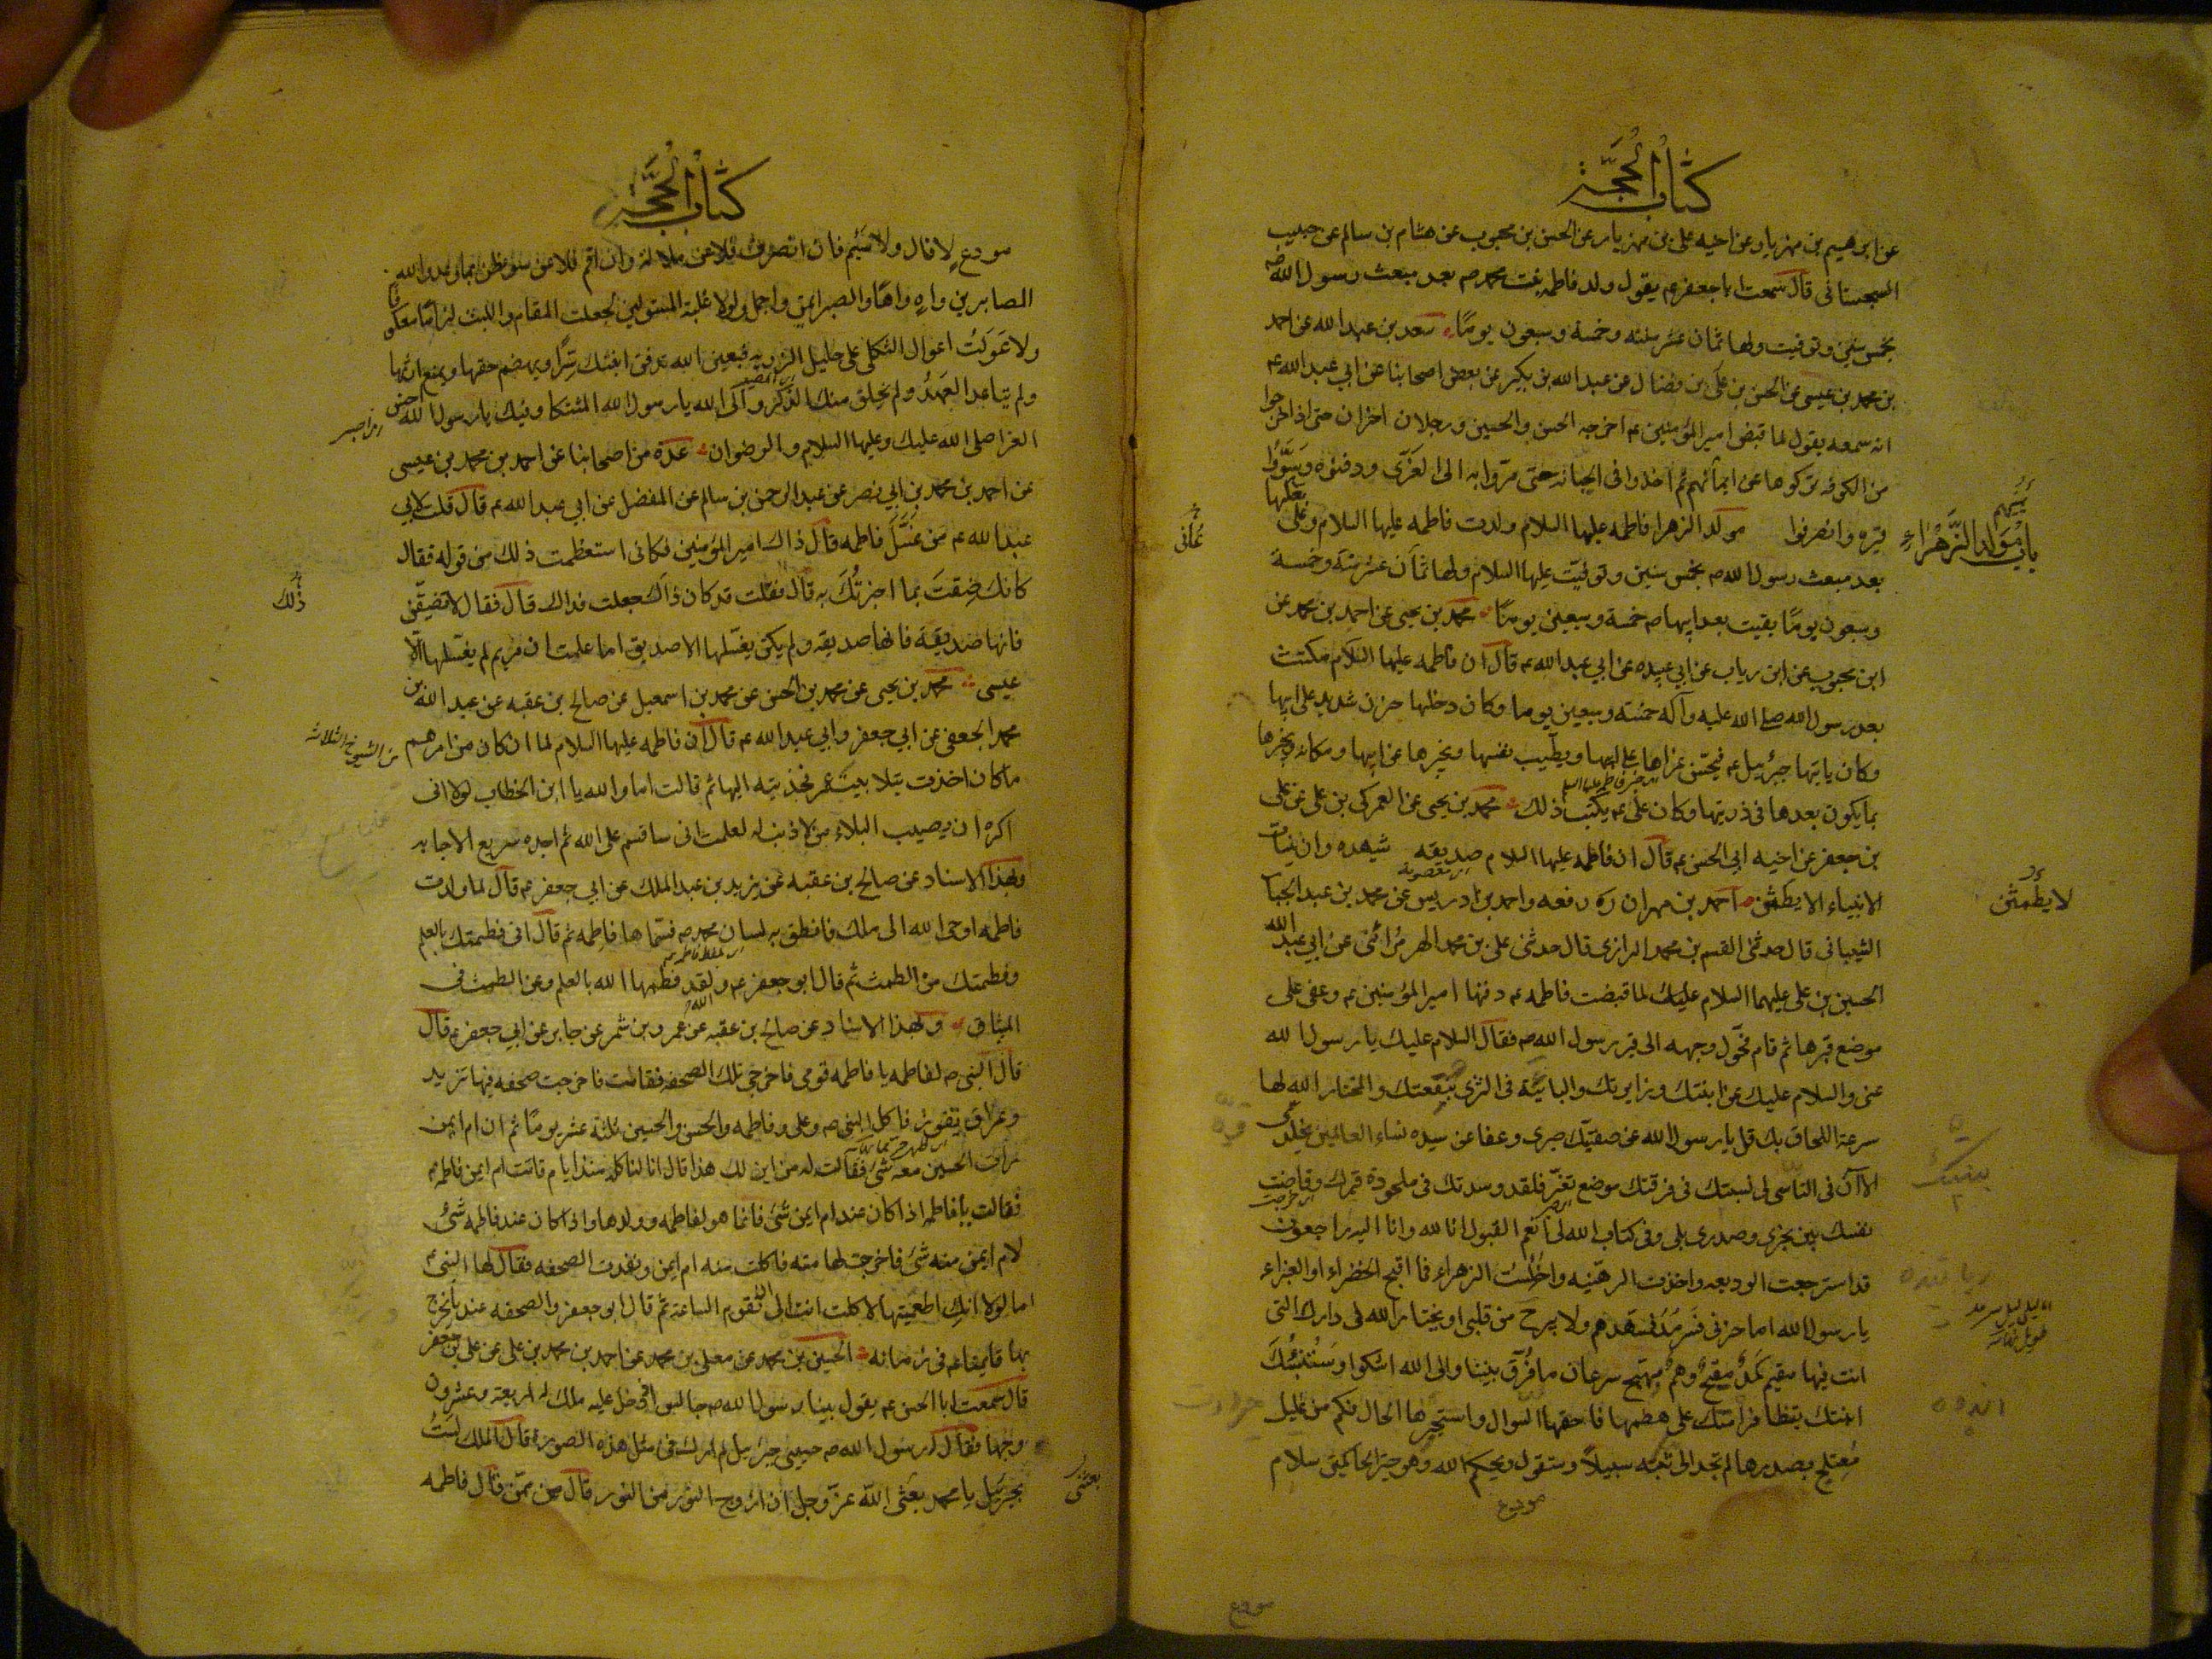 كتاب الحجة
عن ابرهيم بن مهزيار عن اخيه على بن مهزيار عن الحسن بن محبوب عن هشام بن سالم عن حبيب
السجستانى قال سمعت ابا جعفر ع يقول ولد فاطمه بنت محمد ص بعد مبعث رسول الله ص
بخمس سنين وتوفيت ولها ثمان عشر سنه وخمسة وسبعون يومًا سعد بن عبد الله عن احمد
بن محمد بن عيسى عن الحسن بن على بن فضال عن عبد الله بن بكير عن بعض اصحابنا عن ابي عبد الله ع
انه سمعه يقول لما قبض امير المؤمنين ع اخرجه الحسن والحسين ورجلان اخران حتى اذا خرجوا
من الكوفه تركوها عن ايمانهم ثم اخذوا فى الجبانه حتى مروا به الى الغرّى ودفنوه وسَوَّوا
قبره وانصرفوا مولد الزهرا فاطمه عليها السلام ولدت فاطمه عليها السلام وعلى بعلها
باب مولد الزَّهْرَاءِ
بعد مبعث رسول الله ص بخمس سنين وتوفيت عليها السلام ولها ثمان عشر سنة وخمسة
وسبعون يومًا بقيت بعد ابيها ص خمسة وسبعين يومًا محمد بن يحيى عن احمد بن محمد عن
ابن محبوب عن ابن رياب عن ابي عبيده عن ابي عبد الله ع قال ان فاطمه عليها السلام مكثت
بعد رسول الله صلى الله عليه وآله خمسة وسبعين يوما وكان دخلها حزن شديد على ابيها
وكان ياتيها جبرئيل ع فيحسن عزاها على ابيها ويطيب نفسها ويخبرها عن ابيها ومكانه ويخبرها
بما يكون بعدها فى ذريتها وكان على ع يكتب ذلك محمد بن يحيى عن العمركى بن على عن على
بن جعفر عن اخيه ابي الحسن ع قال ان فاطمه عليها السلام صديقه شهيده وان بنات
الانبياء لا يطمثن احمد بن مهران ره رفعه واحمد بن ادريس عن محمد بن عبد الجبا
لا يطمثن
الشيبانى قال حدثنى القسم بن محمد الرازى قال حدثنى على بن محمد الهرمزانى عن ابي عبد الله
الحسين بن على عليهما السلام قال لما قبضت فاطمه ع دفنها امير المؤمنين ع وعفى على
موضع قبرها ثم قام فحوّل وجهه الى قبر رسول الله ص فقال السلام عليك يا رسول الله
عنى والسلام عليك عن ابنتك وزايرتك والبائتة فى الثرى ببقعتك والمختار الله لها
سرعة اللحاق بك قل يا رسول الله عن صفيتك صبرى وعفا عن سيده نساء العالمين تجلدى
الا ان فى التأسى لى بسنتك فى فرقتك موضع تعزّ فلقد وسدتك فى ملحودة قبرك وفاضت
نفسك بين نحرى وصدرى بلى وفى كتاب الله لى انعم القبول انا لله وانا اليه راجعون
قد استرجعت الوديعه واخذت الرهينه واخلست الزهراء فما اقبح الخضراء والغبراء
يا رسول الله اما حزنى فسرمد واما ليلى فمسهد وهم لا يبرح من قلبى او يختار الله لى دارك التى
انت فيها مقيم كمد مقيح وهم مهيج سرعان ما فرّق بيننا والى الله اشكوا وستنبئك
ابنتك بتظافر امتك على هضمها فاحفها السوال واستخبرها الحال فكم من غليل
معتلج بصدرها لم تجد الى بثه سبيلاً وستقول ويحكم الله وهو خير الحاكمين سلام
مودع
كتاب الحجة
مودع لا قال ولا سئم فان انصرف فلا عن ملالة وان اقم فلا عن سوء ظن بما وعد الله
الصابرين واه واهًا والصبر ايمن واجمل ولولا غلبة المستولين لجعلت المقام واللبث لزامًا معكوفا
ولاعولت اعوال الثكلى على جليل الرزيه فبعين الله تدفن ابنتك سرًّا ويهضم حقها ويمنع ارثها
ولم يتباعد العهد ولم يخلق منك الذكر والى الله يا رسول الله المشتكا وفيك يا رسول الله احسن
العزا صلى الله عليك وعليها السلام والرضوان عدة من اصحابنا عن احمد بن محمد بن عيسى
عن احمد بن محمد بن ابي نصر عن عبد الرحمن بن سالم عن المفضل عن ابي عبد الله ع قال قلت لابي
عبد الله ع من غسّل فاطمه قال ذاك امير المؤمنين فكانى استعظمت ذلك من قوله فقال
كانك ضقت بما اخبرتُك به قال فقلت قد كان ذاك جعلت فداك قال فقال لا تضيقن
ذلك
فانها صديقة فانها صديقه ولم يكن يغسلها الا صديق اما علمت ان مريم لم يغسلها الّا
عيسى محمد بن يحيى عن محمد بن الحسن عن محمد بن اسمعيل عن صالح بن عقبه عن عبد الله بن
محمد الجعفى عن ابي جعفر وابي عبد الله ع قال ان فاطمه عليها السلام لما ان كان من امرهم
ما كان اخذت بتلابيب عمر فجذبته اليها ثم قالت اما والله يا ابن الخطاب لولا انى
اكره ان يصيب البلاء من لا ذنب له لعلمت انى ساقسم على الله ثم اجده سريع الاجابه
وبهذا الاسناد عن صالح بن عقبه عن يزيد بن عبد الملك عن ابي جعفر ع قال لما ولدت
فاطمه اوحى الله الى ملك فانطق به لسان محمد ص فسماها فاطمه ثم قال انى فطمتك بالعلم
وفطمتك من الطمث ثم قال ابو جعفر ع ولقد فطمها الله بالعلم وعن الطمث فى
الميثاق وبهذا الاسناد عن صالح بن عقبه عن عمرو بن شمر عن جابر عن ابي جعفر ع قال
قال النبى ص لفاطمه يا فاطمه قومى فاخرجى تلك الصحفه فقامت فاخرجت صحفه فيها تزيد
وعراق يفور فاكل النبى ص وعلى وفاطمه والحسن والحسين ثلثة عشر يومًا ثم ان ام ايمن
رات الحسين معه شئ فقالت له من اين لك هذا قال انا لناكله منذ ايام فاتت ام ايمن فاطمه ع
فقالت يا فاطمه اذا كان عند ام ايمن شئ فانما هو لفاطمه وولدها واذا كان عند فاطمه شئ
لام ايمن منه شئ فاخرجت لها منه فاكلت منه ام ايمن ونفدت الصحفه فقال لها النبى
اما لولا انك اطعمتها لاكلت انت الى ان تقوم الساعة ثم قال ابو جعفر والصحفه عندنا يخرج
بها قايمنا ع فى زمانه الحسين بن محمد عن معلى بن محمد عن احمد بن محمد بن على عن على بن جعفر
قال سمعت ابا الحسن ع يقول بينا رسول الله ص جالس اذ دخل عليه ملك له اربعة وعشرون
وجها فقال له رسول الله ص حبيبى جبرئيل لم ارك فى مثل هذه الصورة قال الملك لستُ
بجبرئيل يا محمد بعثنى الله عزّ وجل ان ازوج النور من النور قال من ممّن قال فاطمه
بعثنى